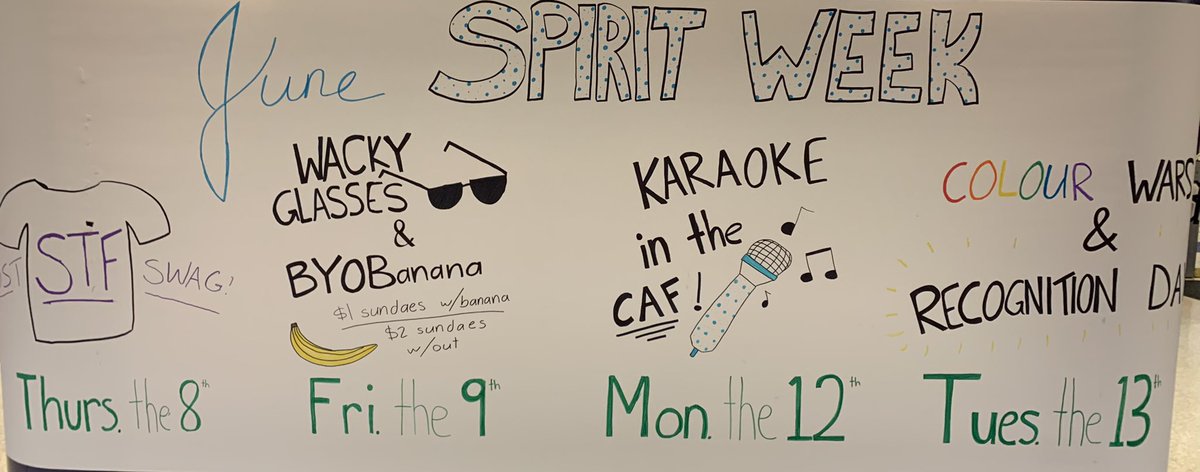 June SPIRIT WEEK
STF
SWAG!
Thurs. the 8th
WACKY
GLASSES
&
BYOBanana
$1 sundaes w/banana
$2 sundaes
w/out
Fri. the 9th
KARAOKE
in the
CAF!
Mon. the 12th
COLOUR WARS
&
RECOGNITION DA
Tues. the 13th